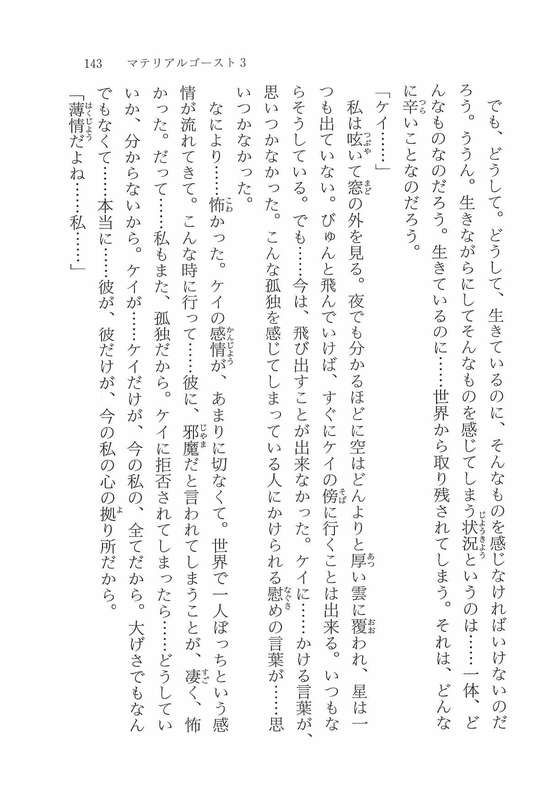 143　マテリアルゴースト3
でも、どうして。どうして、生きているのに、そんなものを感じなければいけないのだ
ろう。ううん。生きながらにしてそんなものを感じてしまう状況というのは……一体、ど
んなものなのだろう。生きているのに……世界から取り残されてしまう。それは、どんな
に辛いことなのだろう。
「ケイ……」
私は呟いて窓の外を見る。夜でも分かるほどに空はどんよりと厚い雲に覆われ、星は一
つも出ていない。びゅんと飛んでいけば、すぐにケイの傍に行くことは出来る。いつもな
らそうしている。でも……今は、飛び出すことが出来なかった。ケイに……かける言葉が、
思いつかなかった。こんな孤独を感じてしまっている人にかけられる慰めの言葉が……思
いつかなかった。
なにより……怖かった。ケイの感情が、あまりに切なくて。世界で一人ぼっちという感
情が流れてきて。こんな時に行って……彼に、邪魔だと言われてしまうことが、凄く、怖
かった。だって……私もまた、孤独だから。ケイに拒否されてしまったら……どうしてい
いか、分からないから。ケイが……ケイだけが、今の私の、全てだから。大げさでもなん
でもなくて……本当に……彼が、彼だけが、今の私の心の拠り所だから。
「薄情だよね……私……」